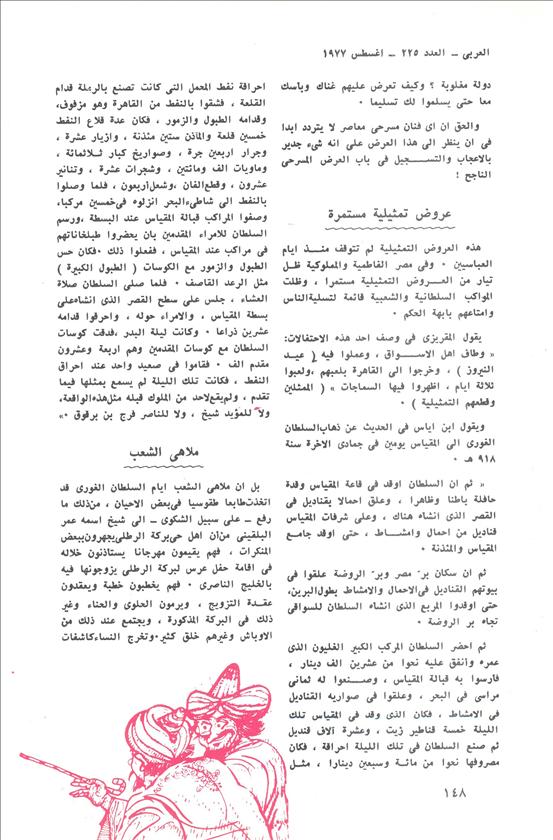 العربي ــ العدد ٢٢٥ ــ اغسطس ١٩٧٧
دولة مغلوبة ؟ وكيف تعرض عليهم غناك وباسك
معا حتى يسلموا لك تسليما ٠
والحق ان اى فنان مسرحى معاصر لا يتردد ابدا
فى ان ينظر الى هذا العرض على انه شىء جدير
بالاعجاب والتســـجيل فى باب العرض المسرحى
الناجح !
عروض تمثيلية مستمرة
هذه العروض التمثيلية لم تتوقف منـــذ ايام
العباسيين ٠ وفى مصر الفاطمية والمملوكية ظـل
تيار من العـــروض التمثيلية مستمرا ، وظلت
المواكب السلطانية والشعبية قائمة لتسلية الناس
وامتاعهم بابهة الحكم ٠
يقول المقريزى فى وصف احد هذه الاحتفالات:
« وطاف اهل الاســـواق ، وعملوا فيه ( عيـد
النيروز ) ، وخرجوا الى القاهرة بلعبهم ،ولعبوا
ثلاثة ايام ، اظهروا فيها السماجات » ( الممثلين
وقطعهم التمثيلية ) ٠
ويقول ابن اياس فى الحديث عن ذهاب السلطان
الغورى الى المقياس يومين فى جمادى الاخرة سنة
٩١٨ هـ ٠
« ثم ان السلطان اوقد فى قاعة المقياس وقدة
حافلة باطنا وظاهرا ، وعلق احمالا بقناديل فى
القصر الذى انشاه هناك ، وعلى شرفات المقياس
قناديل من احمال وامشـــاط ، حتى اوقد جامـع
المقياس والمئذنة ٠
ثم ان سكان برّ مصر وبرّ الروضة علقوا فى
بيوتهم القناديل فى الاحمال والامشاط بطول البرين،
حتى اوقدوا المربع الذى انشاه السلطان للسواقى
تجاه بر الروضة ٠
ثم احضر السلطان المركب الكبير الغليون الذى
عمره وانفق عليه نحوا من عشرين الف دينار ،
فارسوا به قبالة المقياس ، وصـــنعوا له ثمانى
مراسى فى البحر ، وعلقوا فى صواريه القناديل
فى الامشاط ، فكان الذى وقد فى المقياس تلك
الليلة خمسة قناطير زيت ، وعشرة آلاف قنديل
ثم صنع السلطان فى تلك الليلة احراقة ، فكان
مصروفها نحوا من مائـة وسبعين دينارا ، مثـل
احراقة نفط المحمل التى كانت تصنع بالرملة قدام
القلعة ، فشقوا بالنفط من القاهرة وهو مزفوف،
وقدامه الطبول والزمور ، فكان عدة قلاع النفط
خمسين قلعة والمآذن ستين مئذنة ، وازيار عشرة ،
وجرار اربعين جرة ، وصواريخ كبار ثـلاثمائة ،
وماويات الف ومائتين ، وشجرات عشرة ، وتنانير
عشرون ، وقطع الفان ،وشعل اربعون ، فلما وصلوا
بالنفط الى شاطىء البحر انزلوه فى خمسين مركبا،
وصفوا المراكب قبالة المقياس عند البسطة ،ورسم
السلطان للامراء المقدمين بان يحضروا طبلخاناتهم
فى مراكب عند المقياس ، ففعلوا ذلك ٠فكان حس
الطبول والزمور مع الكوسات ( الطبول الكبيرة )
مثل الرعد القاصف ٠ فلما صلى السلطان صلاة
العشاء ، جلس على سطح القصر الذى انشاه على
بسطة المقياس ، والامراء حوله ، واحرقوا قدامه
عشرين ذراعا ٠ وكانت ليلة البدر ،فدقت كوسات
السلطان مع كوسات المقدمين وهم اربعة وعشرون
مقدم الف ٠ فقاموا فى صعيد واحد عند احراق
النفط ، فكانت تلك الليلة لم يسمع بمثلها فيما
تقدم ، ولم يقع لاحد من الملوك قبله مثل هذه الواقعة،
ولا للمؤيد شيخ ، ولا للناصر فرج بن برقوق ٠»
ملاهى الشعب
بل ان ملاهى الشعب ايام السلطان الغورى قد
اتخذت طابعا طقوسيا فى بعض الاحيان ، من ذلك ما
رفع ــ على سبيل الشكوى ــ الى شيخ اسمه عمر
البلقينى من ان اهل حى بركة الرطلى يجهرون ببعض
المنكرات ، فهم يقيمون مهرجانا يستاذنون خلاله
فى اقامة حفل عرس لبركة الرطلى يزوجونها فيه
بالخليج الناصرى ٠ فهم يخطبون خطبة ويعقدون
عقـدة التزويج ، ويرمون الحلوى والحناء وغير
ذلك فى البركة المذكورة ، ويجتمع عند ذلك من
الاوباش وغيرهم خلق كثير ٠وتخرج النساء كاشفات
١٤٨